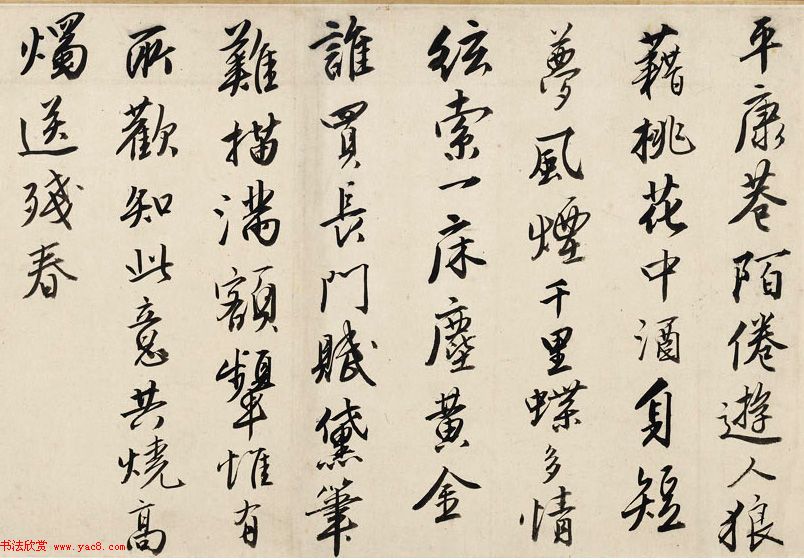 平康巷陌倦遊人狼
藉桃花中酒身短
夢風煙千里蝶多情
絃索一床塵黃金
誰買長門賦黛筆
難描滿額顰惟有
所歡知此意共燒高
燭送殘春
书法欣赏 www.yac8.com